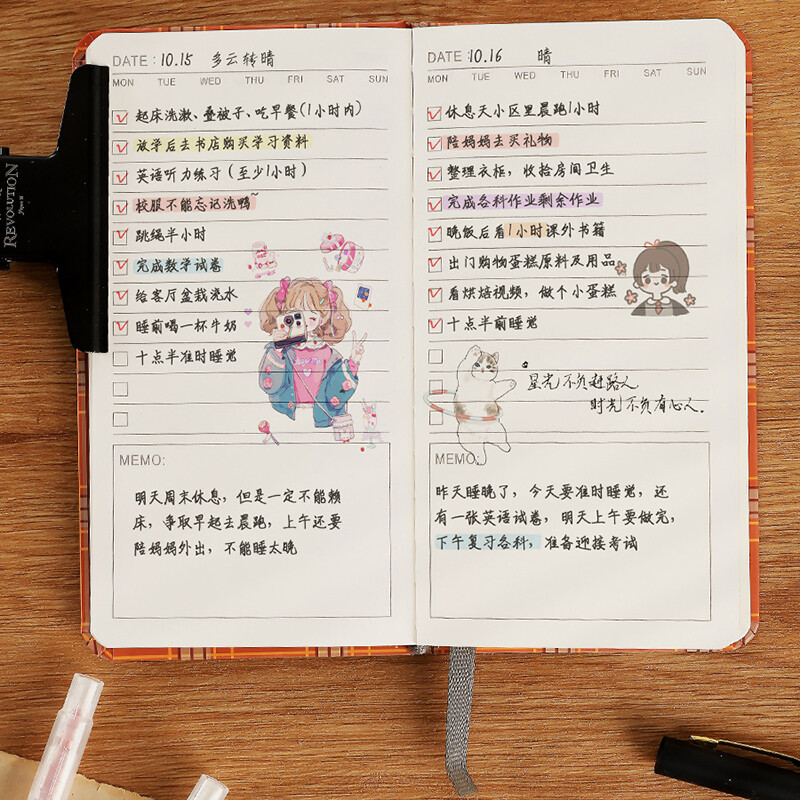 DATE : 10.15 多云转晴
MON TUE WED THU FRI SAT SUN
起床洗漱、叠被子、吃早餐(1小时内)
放学后去书店购买学习资料
英语听力练习(至少1小时)
校服不能忘记洗鸭~
跳绳半小时
完成数学试卷
给客厅盆栽浇水
睡前喝一杯牛奶
十点半准时睡觉
MEMO:
明天周末休息，但是一定不能赖
床，争取早起去晨跑，上午还要
陪妈妈外出，不能睡太晚
DATE : 10.16 晴
MON TUE WED THU FRI SAT SUN
休息天小区里晨跑1小时
陪妈妈去买礼物
整理衣柜，收拾房间卫生
完成各科作业剩余作业
晚饭后看1小时课外书籍
出门购物蛋糕原料及用品
看烘焙视频，做个小蛋糕
十点半前睡觉
星光不负赶路人
时光不负有心人.
MEMO:
昨天睡晚了，今天要准时睡觉，还
有一张英语试卷，明天上午要做完，
下午复习各科，准备迎接考试
REVOLUTION